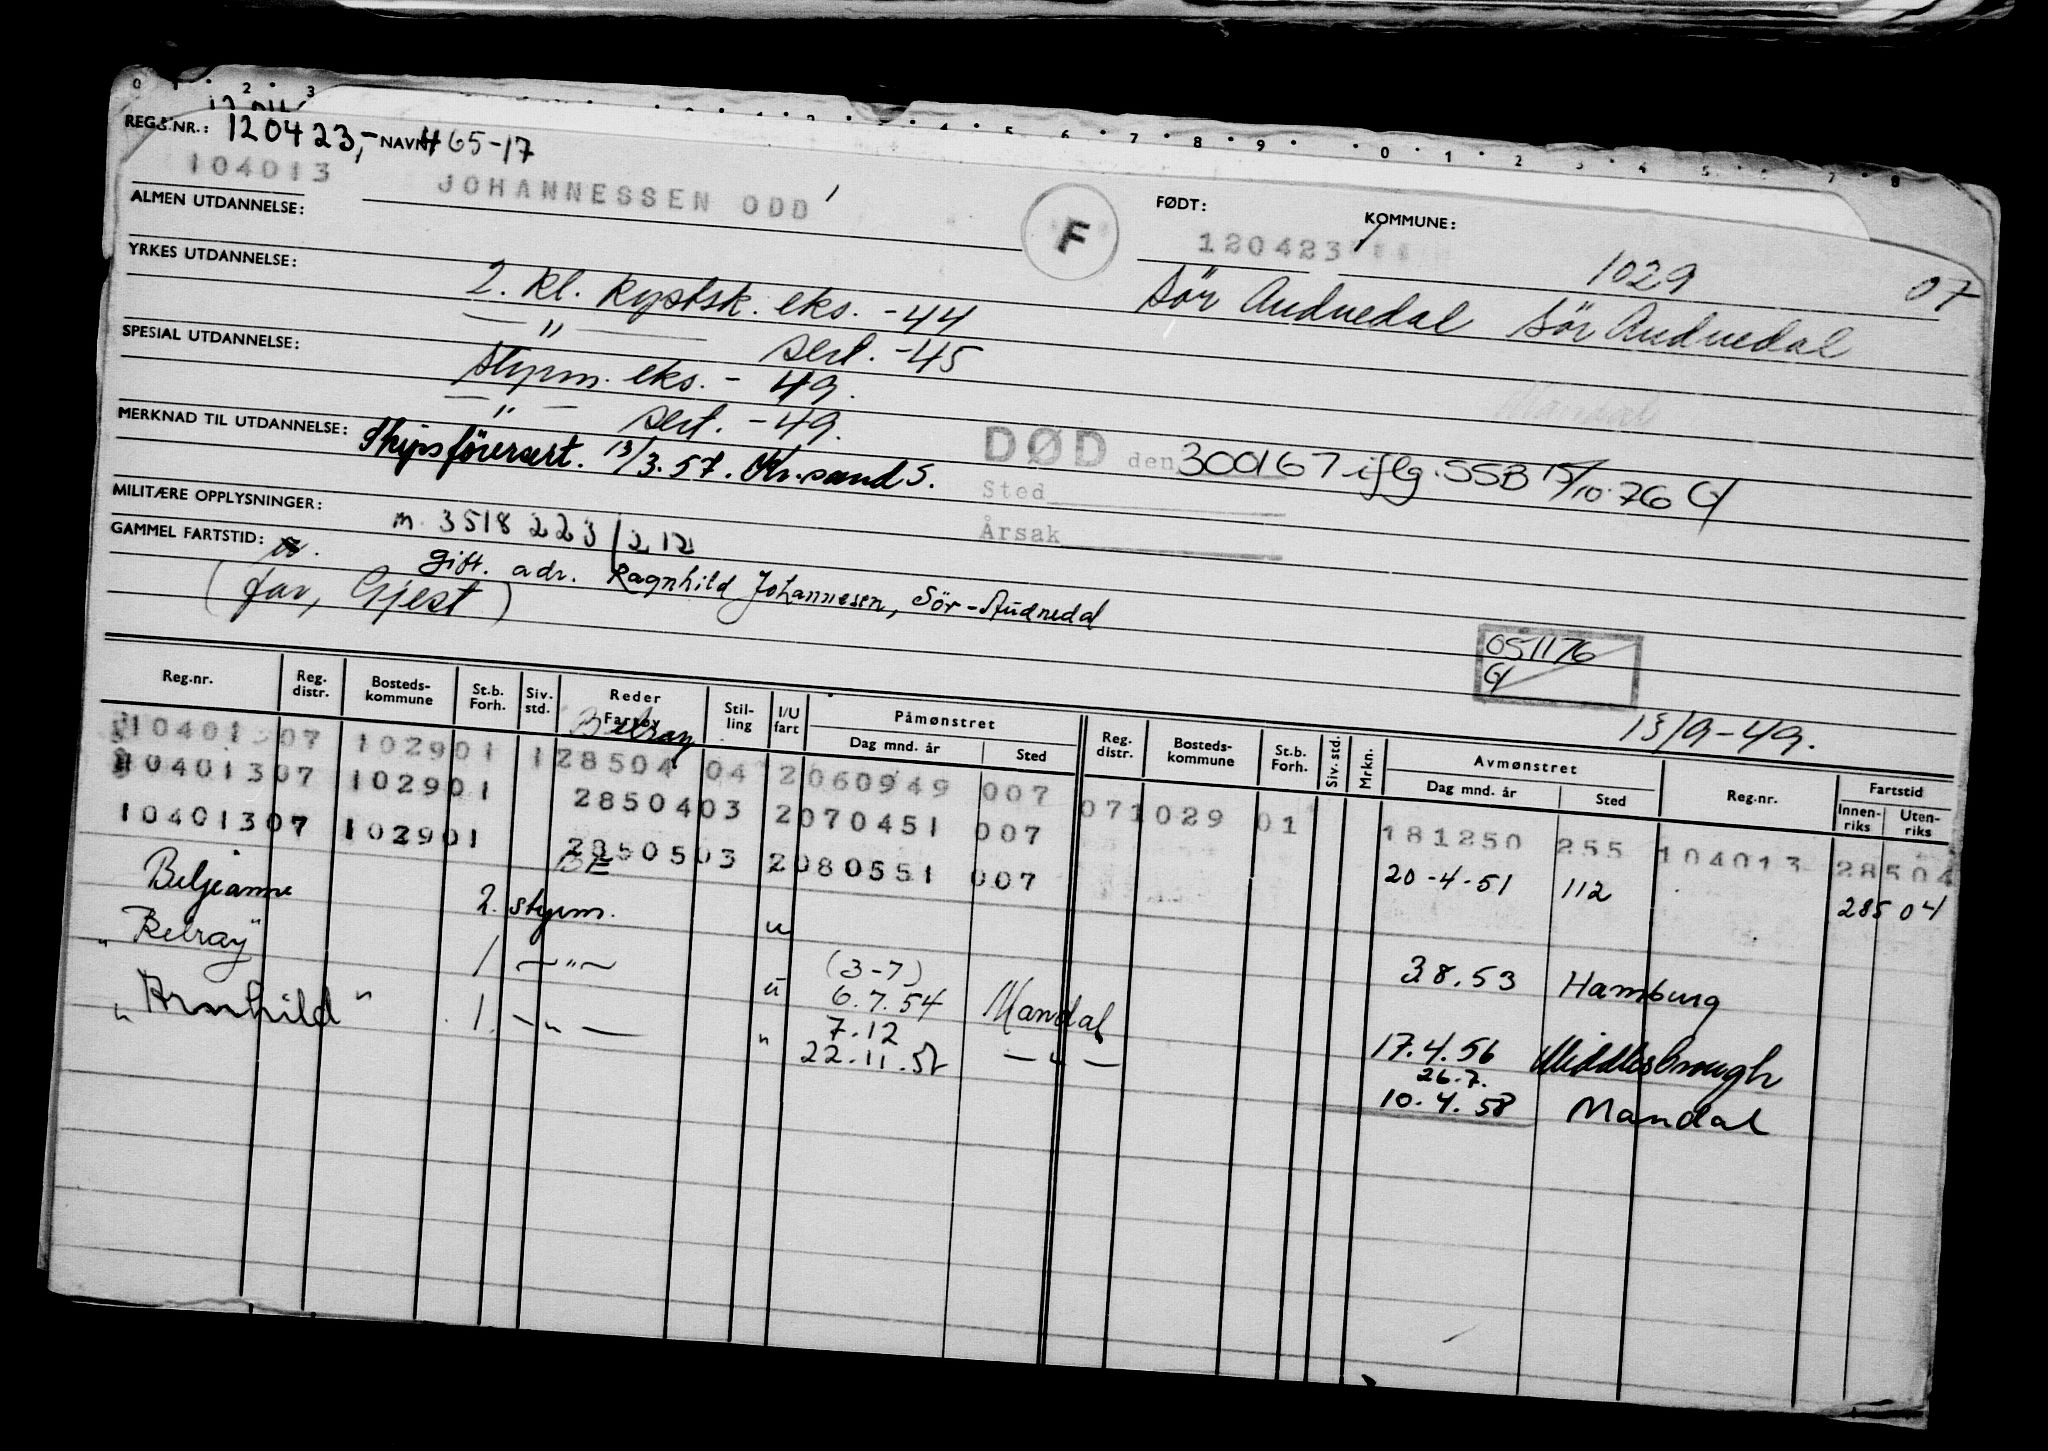 REG.NR.: 120423,- NAVN: 465-17
104013 JOHANNESSEN ODD
F
FØDT: 120423
KOMMUNE:
1029 07
ALMEN UTDANNELSE:
Sör Audnedal Sör Audnedal
YRKES UTDANNELSE: 2. kl. kystsk. eks. -44
— " — sert. -45
SPESIAL UTDANNELSE: styrm. eks. - 49.
— " — sert. -49.
MERKNAD TIL UTDANNELSE: Skipsförersert. 13/3.57. Kr.sand S.
DØD den 300167 iflg. SSB 15/10.76 G
Sted
Årsak
MILITÆRE OPPLYSNINGER: m. 3518223/212
GAMMEL FARTSTID: gift. adr. Ragnhild Johannesen, Sör-Audnedal
(far, Gjest)
051176
G
13/9-49.
Reg.nr. Reg. distr. Bosteds- kommune St.b. Forh. Siv. std. Reder Fartøy Stil- ling I/U fart Påmønstret Dag mnd. år Sted Reg. distr. Bosteds- kommune St.b. Forh. Siv. std. Mrkn. Avmønstret Dag mnd. år Sted Reg.nr. Fartstid Innen- riks Uten- riks
Belray
10401307 102901 128504 04 2060949 007 071029 01 181250 255 104013 28504
10401307 102901 2850403 2070451 007 20-4-51 112 28504
10401307 102901 2850503 2080551 007
Beljeanne 2. styrm. u 3.8.53 Hamburg
"Belray" 1 — " — u (3-7) 6.7.54 Mandal 17.4.56 Middlesbrough
"Arnhild" 1. — " — " 7.12 — " — 26.7.
22.11.5 10.4.58 Mandal